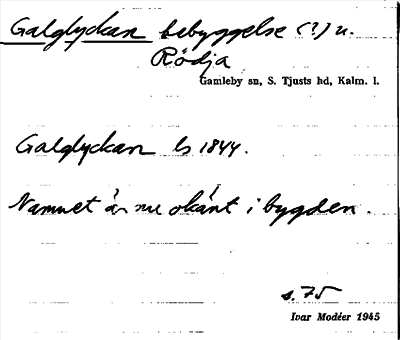 Galglyckan bebyggelse (?) u.
Rödja
Gamleby sn, S. Tjusts hd, Kalm. l.
Galglyckan ls 1844.
Namnet är nu okänt i bygden.
s. 75
Ivar Modéer 1945